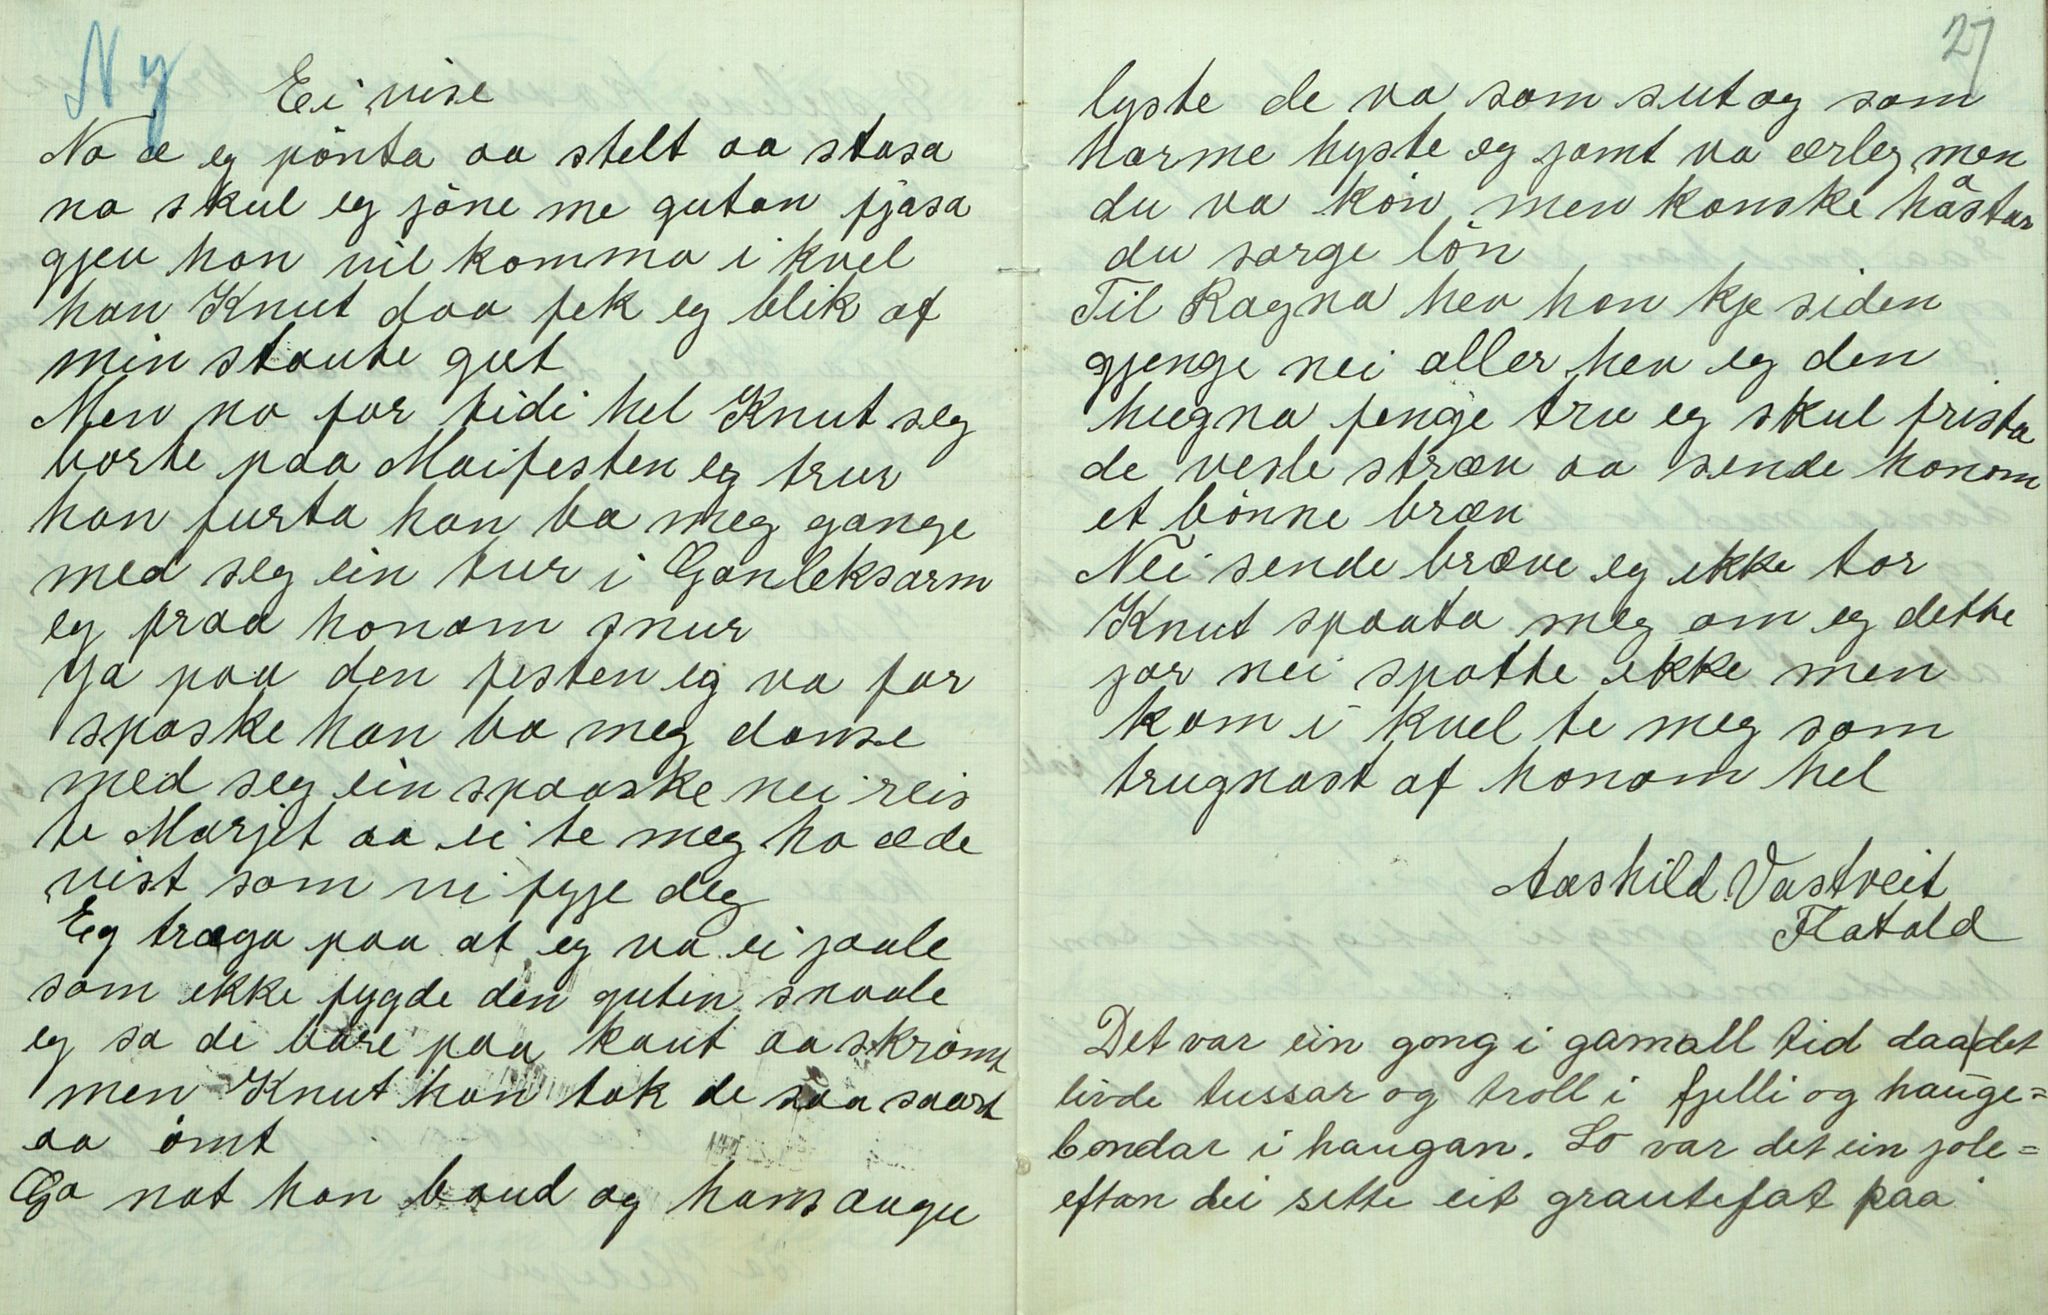 Ny
Ei vise
No æ eg pønta aa stelt aa stasa
no skul eg jøne me gutan fjasa
gjev han vil komma i kvel
han Knut daa fek eg blik af
min staute gut
Men no for tidi hel Knut seg
borte paa Maifesten eg trur
han furta han ba meg gange
med seg ein tur i Ganleksarm
eg fraa honom snur
Ja paa den festen eg va for
spaske han ba meg danse
med seg ein spaaske nei reis
te Marjet aa ei te meg ho æde
vist som vi fyje deg
Eg træga paa at eg va ei jaale
som ikke fygde den guten snaale
eg sa de bare paa kaut aa skrømt
men Knut han tok de saa saart
aa ømt
Go nat han baud og hans augu
27
lyste de va som sut og som
harme hyste eg jamt va ærleg men
du va køn men kanske håstar
du sorge løn
Til Ragna hev han kje siden
gjenge nei aller hev eg den
hugna fengje tru eg skul frista
de vesle stræv aa sende honom
et bønne bræv
Nei sende bræve eg ikke tor
Knut spaata meg om eg dette
jor nei spotte ikke men
kom i kvel te meg som
trugnast af honom hel
Aashild Vastveit
Flatald
Det var ein gong i gamall tid daa det
livde tussar og troll i fjelli og hauge=
bondar i haugan. So var det ein jole=
eftan dei sette eit grautefat paa